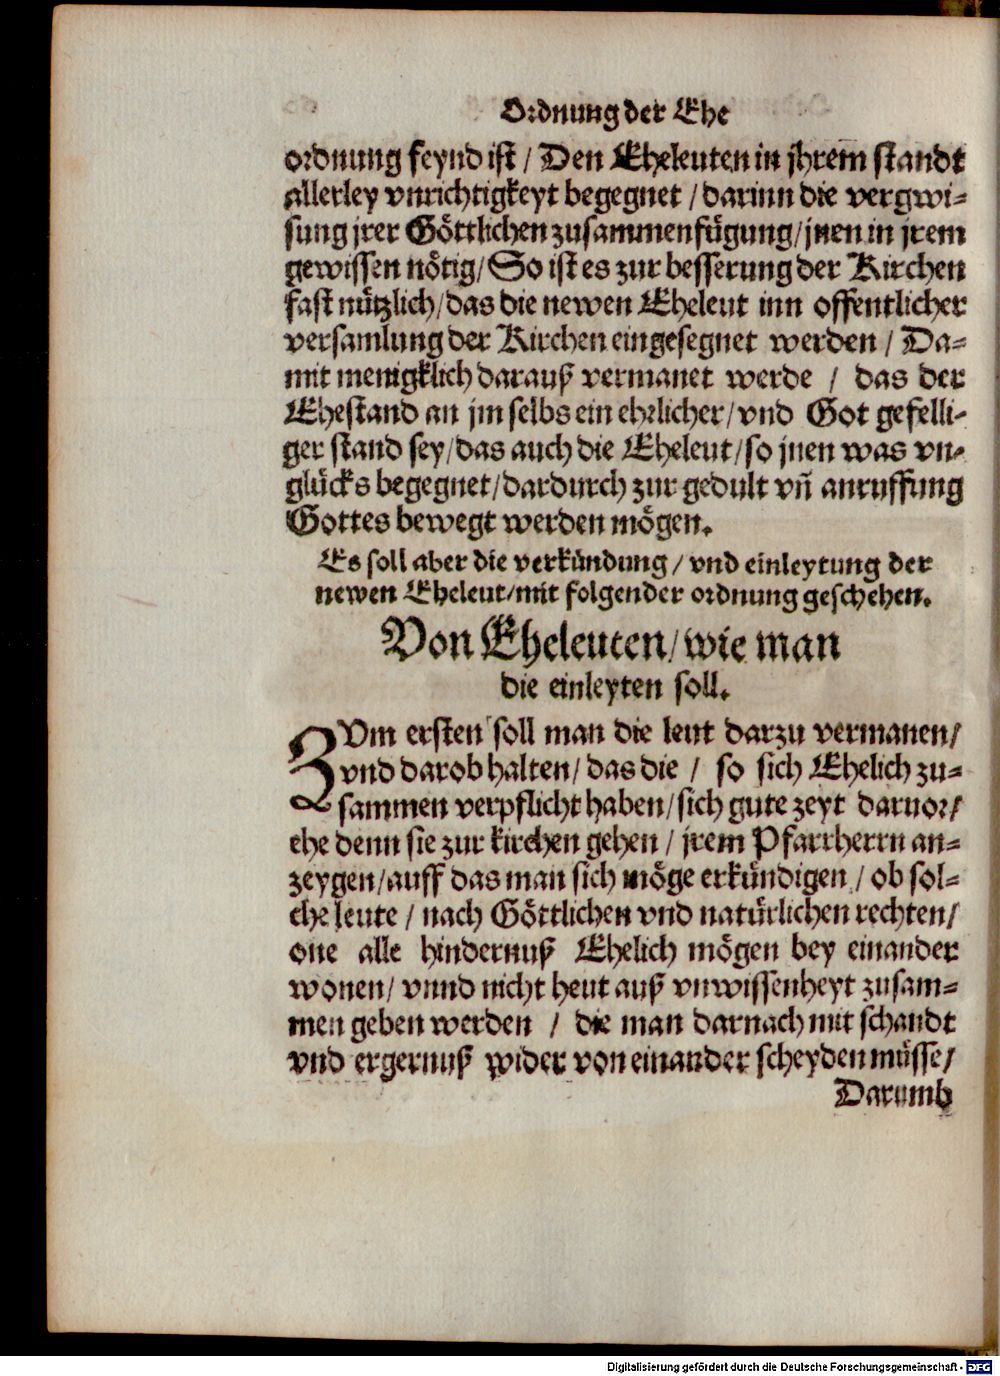 Ordnung der Ehe
ordnung feynd ist / Den Eheleuten in jhrem standt
allerley vnrichtigkeyt begegnet / darinn die vergwi⸗
sung jrer Göttlichen zusammenfügung / jnen in jrem
gewissen nötig / So ist es zur besserung der Kirchen
fast nützlich / das die newen Eheleut inn offentlicher
versamlung der Kirchen eingesegnet werden / Da⸗
mit menigklich darauß vermanet werde / das der
Ehestand an jm selbs ein ehrlicher / vnd Got gefelli⸗
ger stand sey / das auch die Eheleut / so jnen was vn⸗
glücks begegnet / dardurch zur gedult vñ anruffung
Gottes bewegt werden mögen.
Es soll aber die verkündung / vnd einleytung der
newen Eheleut / mit folgender ordnung geschehen.
Von Eheleuten / wie man
die einleyten soll.
ZVm ersten soll man die leut darzu vermanen /
vnd darob halten / das die / so sich Ehelich zu⸗
sammen verpflicht haben / sich gute zeyt daruor /
ehe denn sie zur kirchen gehen / jrem Pfarrherrn an⸗
zeygen / auff das man sich möge erkündigen / ob sol⸗
che leute / nach Göttlichen vnd natürlichen rechten /
one alle hindernuß Ehelich mögen bey einander
wonen / vnnd nicht heut auß vnwissenheyt zusam⸗
men geben werden / die man darnach mit schandt
vnd ergernuß wider von einander scheyden müsse /
Darumb
Digitalisierung gefördert durch die Deutsche Forschungsgemeinschaft - DFG